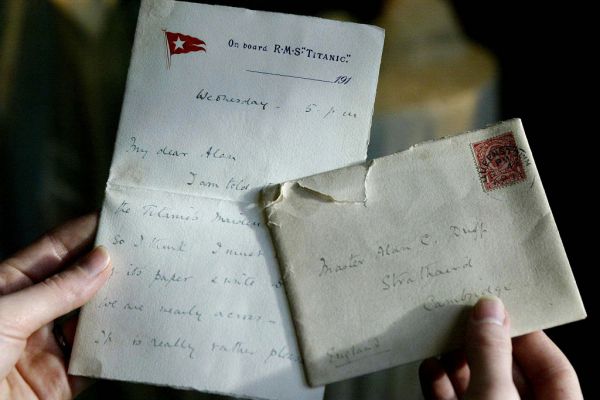 On board R·M·S "TITANIC."
191
Wednesday - 5 p m
My dear Alan
I am told
the Titanic's Maiden
so I think I must
its paper & write
we are nearly across -
It is really rather
Master Alan C. Duff
Strathaird
Cambridge
England